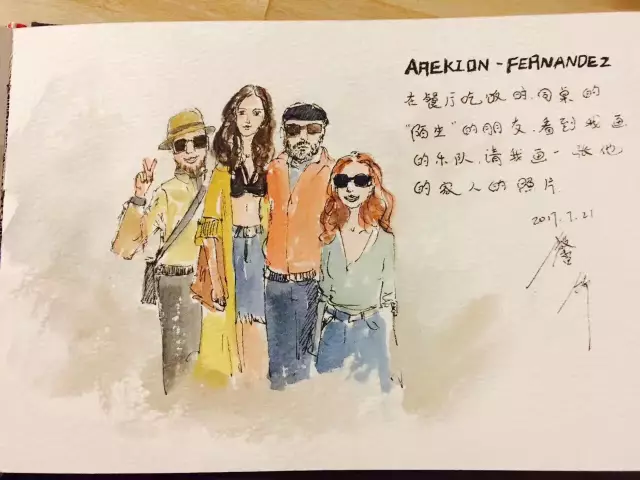 AREKION - FERNANDEZ
在餐厅吃饭时,同桌的
"陌生"的朋友,看到我画
的乐队,请我画一张他
的家人的照片
2017.7.21